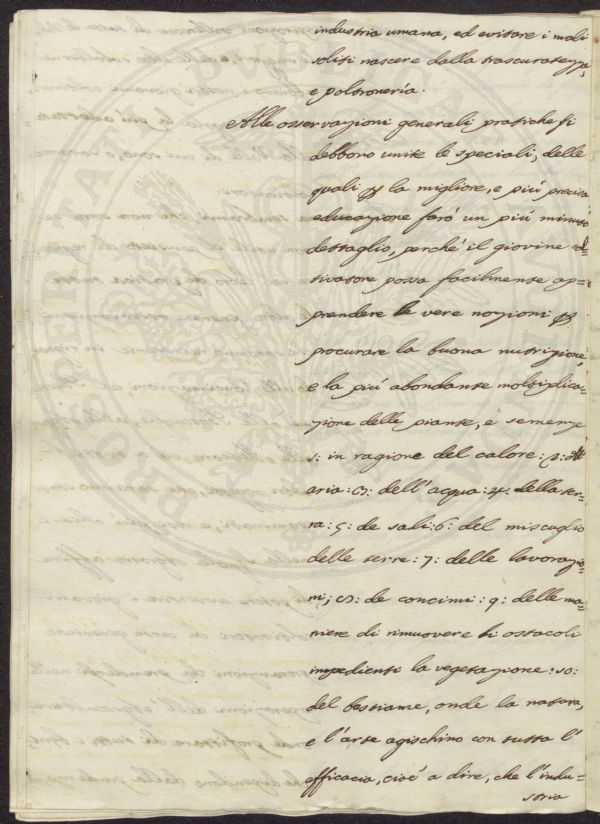 industria umana, ed evitare i mali
soliti nascere dalla trascuratezza,
e poltroneria.
Alle osservazioni generali pratiche si
debbono unire le speciali, delle
quali p la migliore, e più precisa
educazione farò un più minuto
dettaglio, perchè il giovine col=
tivatore possa facilmente ap=
prendere le vere nozioni p
procurare la buona nutrizione,
e la più abondante moltiplica=
zione delle piante, e semenze
1: in ragione del calore: 2: dell
aria: 3: dell'acqua: 4: della ter=
ra: 5: de sali: 6: del miscuglio
delle terre: 7: delle lavorazio=
ni; 8: de concimi: 9: delle ma=
niere di rimuovere li ostacoli
impedienti la vegetazione: 10:
del bestiame, onde la natura,
e l'arte agischino con tutta l'
efficacia, cioè a dire, che l'indu=
stria
PROSPERITATI PUBLICAE